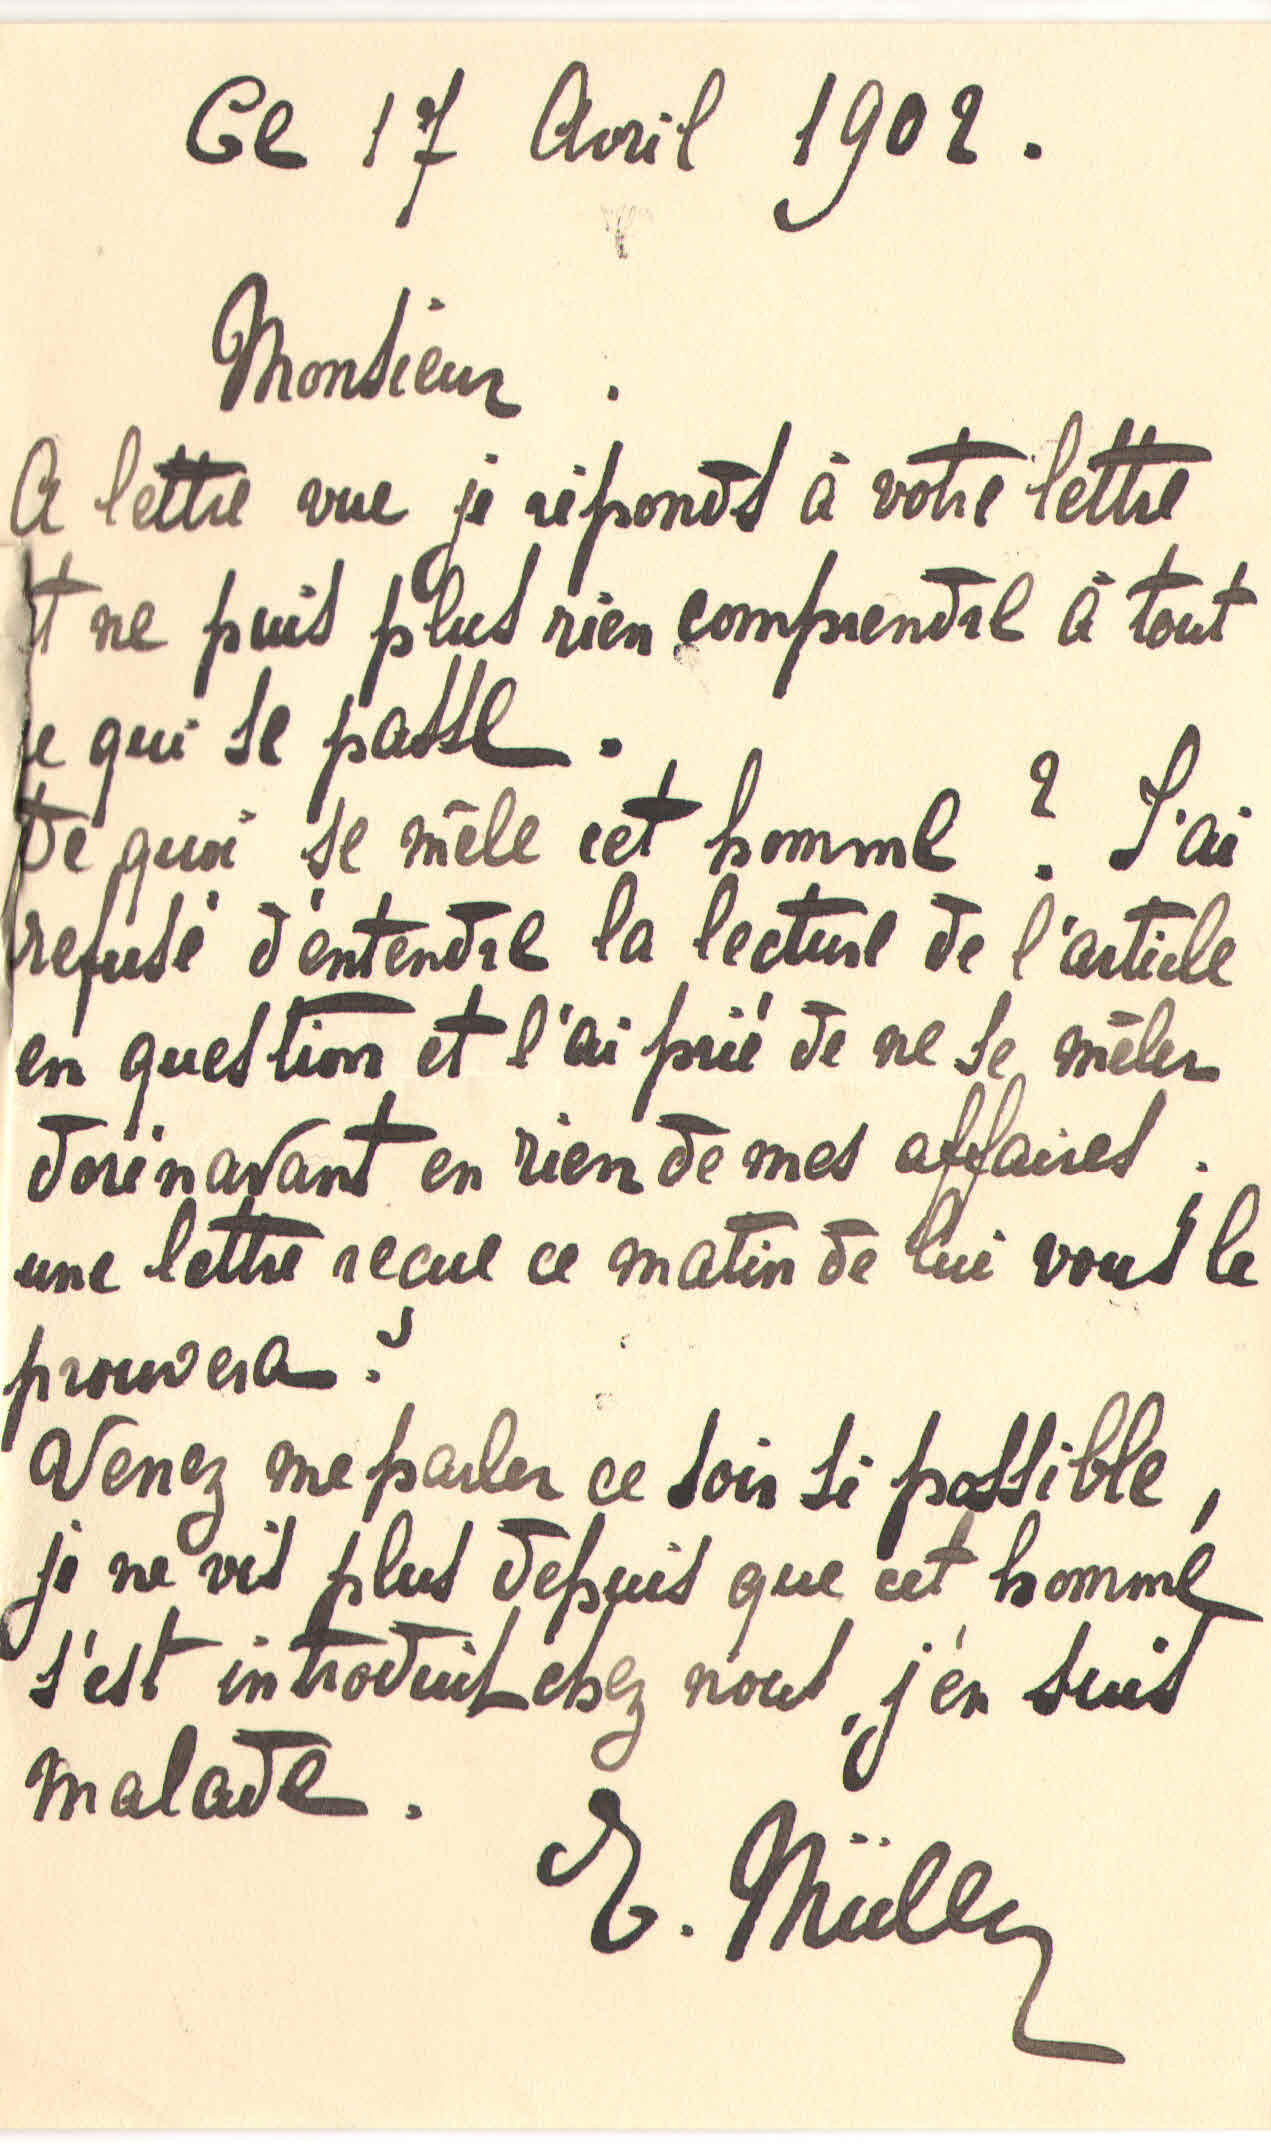 Ce 17 Avril 1902.
Monsieur.
A lettre vue je réponds à votre lettre
et ne puis plus rien comprendre à tout
ce qui se passe.
De quoi se mêle cet homme? J'ai
refusé d'entendre la lecture de l'article
en question et l'ai prié de ne se mêler
dorénavant en rien de mes affaires.
une lettre recue ce matin de lui vous le
prouvera?
Venez me parler ce soir si possible,
je ne vis plus depuis que cet homme
s'est introduit chez nous, j'en suis
malade.
E. Müller